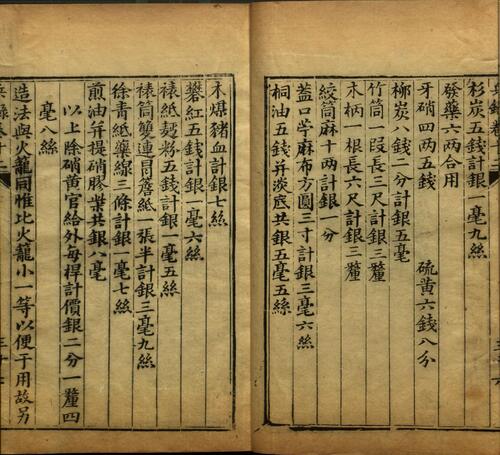 杉炭五錢計銀一毫九絲
發藥六兩合用
牙硝四兩五錢 硫黃六錢八分
柳炭八錢二分計銀五毫
竹筒一段長三尺計銀三釐
木柄一根長六尺計銀三釐
絞筒麻十兩計銀一分
蓋口苧麻布方圓三寸計銀三毫六絲
桐油五錢并淡底共銀五毫五絲
木煤豬血計銀七絲
礬紅五錢計銀一毫六絲
裱紙麪粉五錢計銀一毫五絲
裱筒雙連呂簷紙一張半計銀三毫九絲
徐青紙藥線三條計銀一毫七絲
煎油并提硝膠柴共銀八毫
以上除硝黃官給外每桿計價銀二分一釐四
毫八絲
造法與火籠同惟比火籠小一等以便于用故另